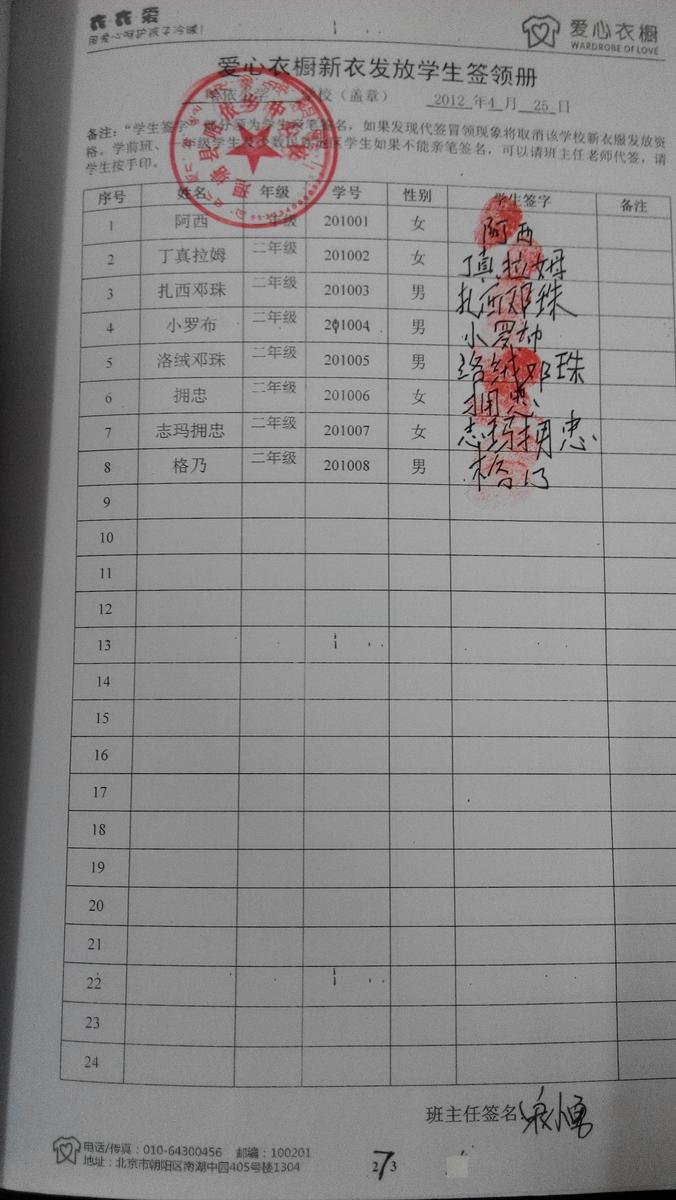 衣衣爱
用爱心呵护孩子冷暖!
爱心衣橱
WARDROBE OF LOVE
爱心衣橱新衣发放学生签领册
依小学 校(盖章) 2012 年 4 月 25 日
备注:“学生签字”部分须为学生亲笔签名,如果发现代签冒领现象将取消该学校新衣服发放资
格。学前班、一年级学生及少数民族地区学生如果不能亲笔签名,可以请班主任老师代签,请
学生按手印。
序号 姓名 年级 学号 性别 学生签字 备注
1 阿西 年级 201001 女 阿西
2 丁真拉姆 二年级 201002 女 丁真拉姆
3 扎西邓珠 二年级 201003 男 扎西邓珠
4 小罗布 二年级 201004 男 小罗布
5 洛绒邓珠 二年级 201005 男 洛绒邓珠
6 拥忠 二年级 201006 女 拥忠
7 志玛拥忠 二年级 201007 女 志玛拥忠
8 格乃 二年级 201008 男 格乃
9
10
11
12
13
14
15
16
17
18
19
20
21
22
23
24
班主任签名:
电话/传真:010-64300456 邮编:100201
地址:北京市朝阳区南湖中园405号楼1304